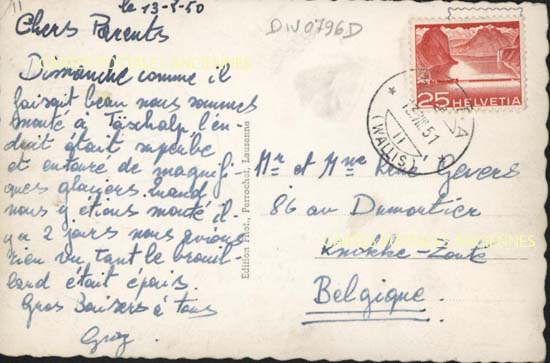 11
le 13-8-50
DIV0796D
Chers Parents
Dimanche comme il
faisait beau nous sommes
monté à Täschalp l'en-
droit était superbe
et entouré de magnifi-
ques glaciers. Quand
nous y étions monté il
y a 2 jours nous avions
rien vu tant le brouil-
lard était épais.
Gros Baisers à tous
Guy
Edition Phot. Perrochet, Lausanne
25 HELVETIA
51
11
(WALLIS)
Mr et Mme Gevers
86 av Dumortier
Knokke-Zoute
Belgique
CARTES POSTALES ANCIENNES